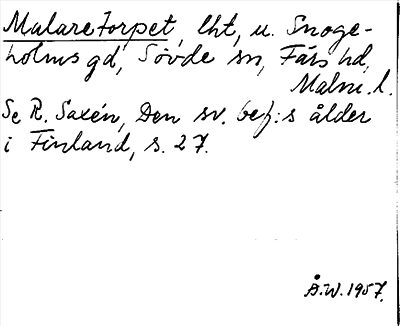 Malaretorpet, lht, u. Snoge-
holms gd, Sövde sn, Färs hd,
Malm. l.
Se R. Saxén, Den sv. bef:s ålder
i Finland, s. 27.
Å.W. 1957.